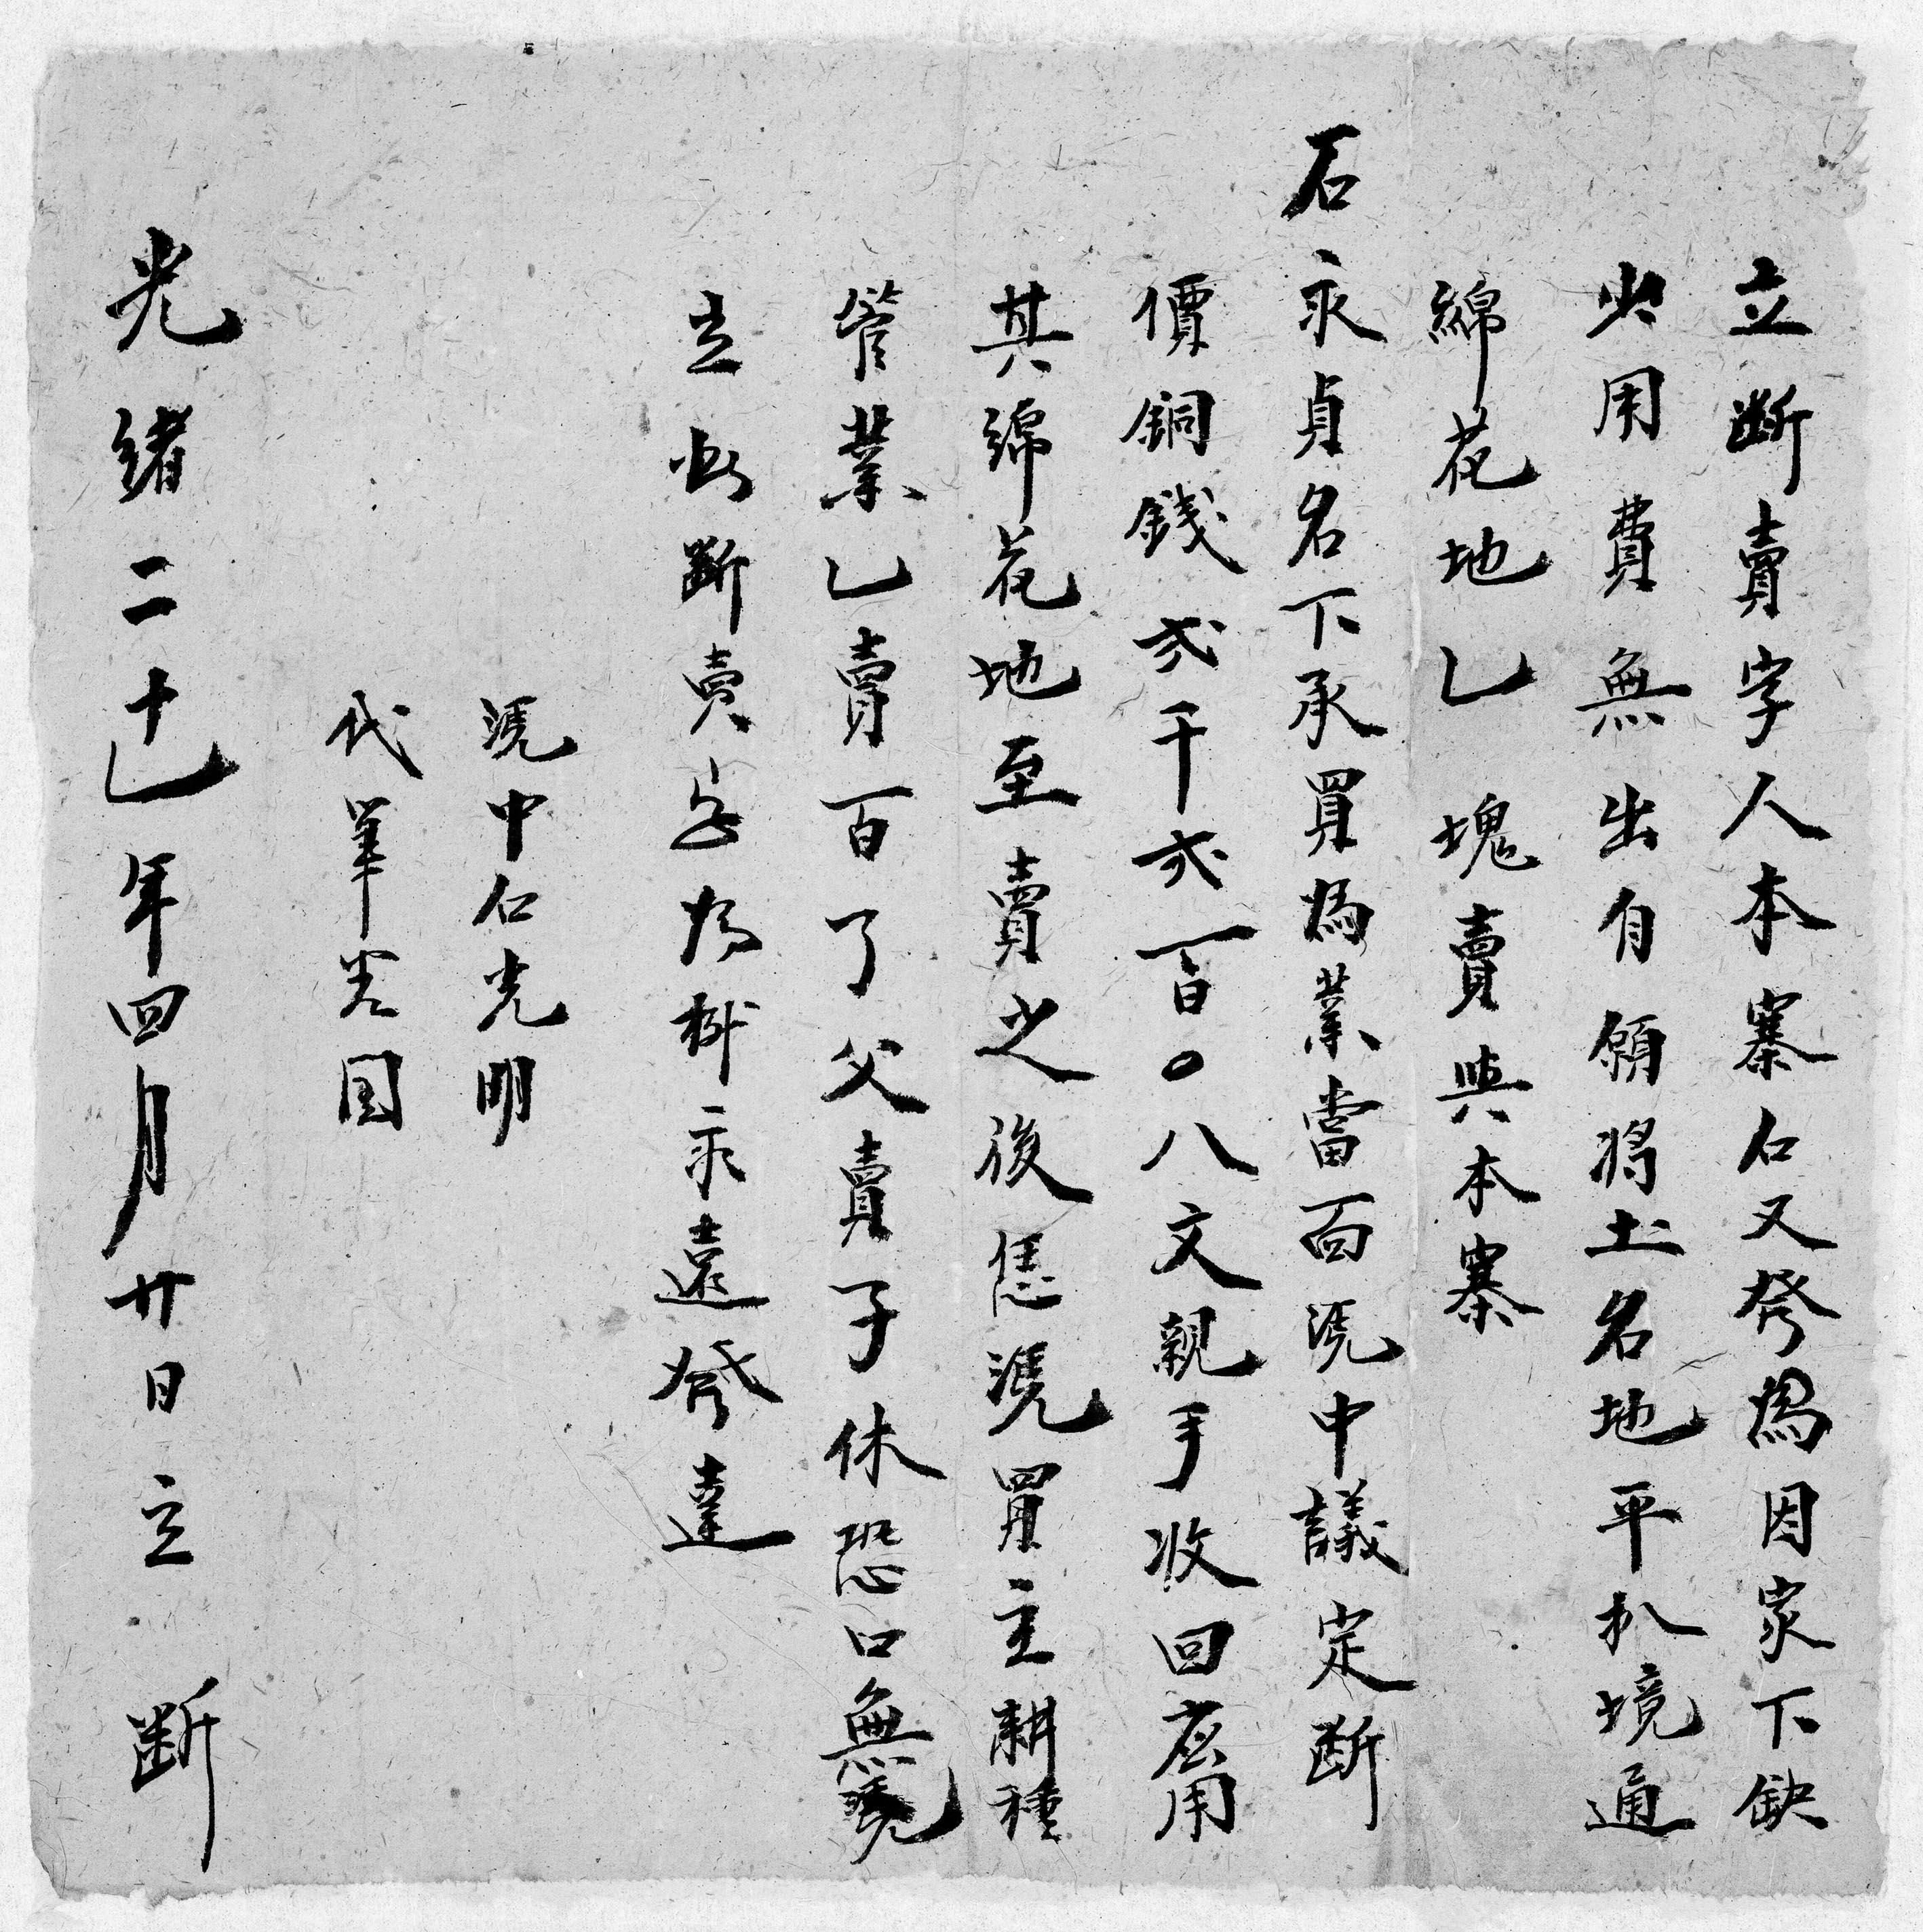 立断賣字人本寨石又發爲因家下缺
少用費無出自願將土名地平扒境通
綿花地乙塊賣與本寨
石永貞名下承買為業當面憑中議定断
價銅錢弍千弍百〇八文親手收回應用
其綿花地至賣之後恁憑買主耕種
管業乙賣百了父賣子休恐口無憑
立此断賣字為據永遠發達
憑中石光明
代筆光国
光緒二十乙年四月廿日立 断